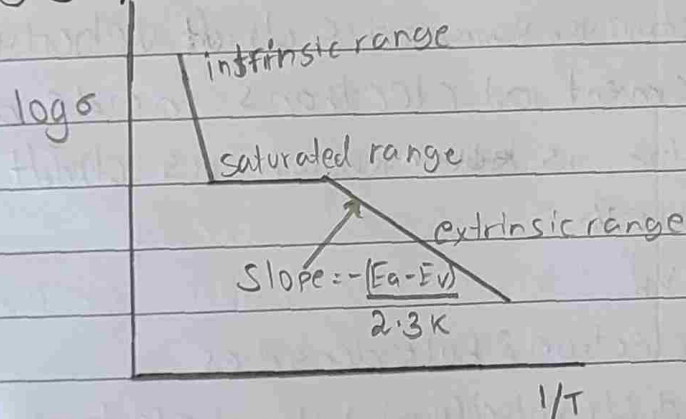 intrinsic range
log σ
saturated range
extrinsic range
Slope = -(Ea-Ev)
2.3K
1/T